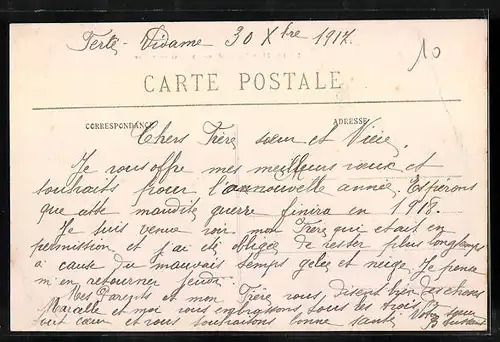 Ferté-Vidame 30 Xbre 1917.
10
CARTE POSTALE
CORRESPONDANCE ADRESSE
Chers Frère, sœur et
Je vous offre mes meilleurs vœux et
souhaits pour la nouvelle année. Espérons
que cette maudite guerre finira en 1918.
Je suis venue voir mon Frère qui était en
permission et j'ai été obligée de rester plus longtemps
à cause du mauvais temps gelée et neige. Je pense
m'en retourner jeudi.
Mes Parents et mon Frère vous disent bien des choses
Marcelle et moi vous embrassons tous les trois
tout cœur et vous souhaitons bonne santé. Votre sœur